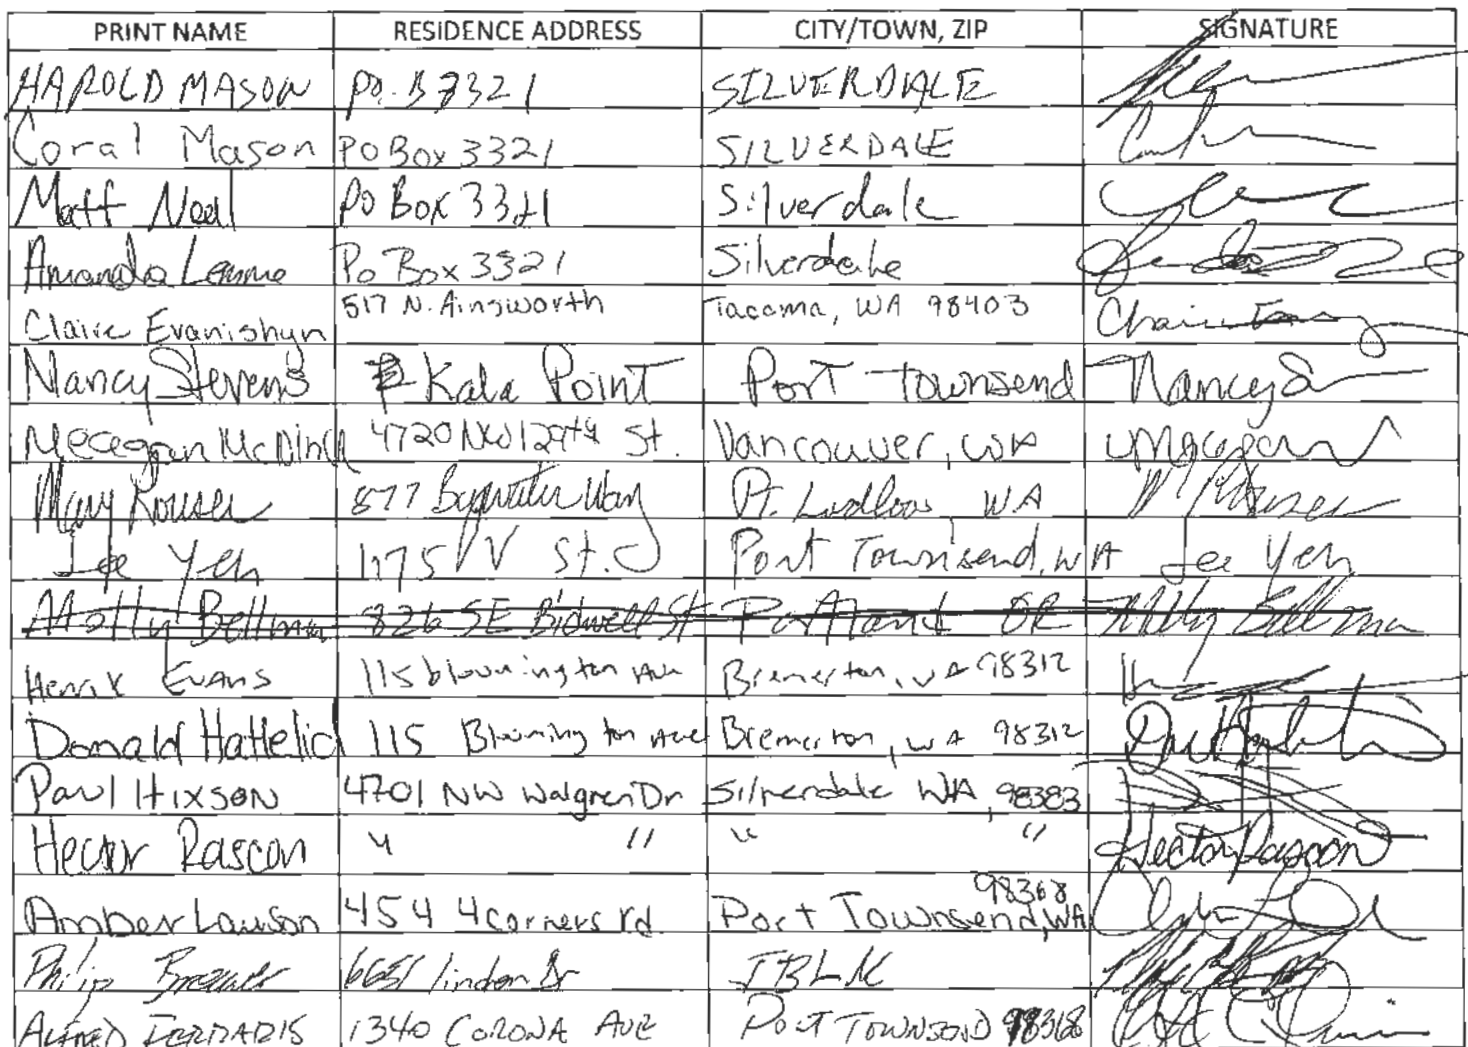 PRINT NAME RESIDENCE ADDRESS CITY/TOWN, ZIP SIGNATURE
HAROLD MASON PO. B 3321 SILVERDALE
Coral Mason PO Box 3321 SILVERDALE
Matt Neal PO Box 3321 Silverdale
Amanda Lemme Po Box 3321 Silverdale
Claire Evanishyn 517 N. Ainsworth Tacoma, WA 98403
Nancy Stevens Kala Point Port Townsend Nancy S
4720 NW 129th St. Vancouver, WA
Mary Rouser 877 Bywater Way Pt. Ludlow, WA M Rouser
Lee Yeh 1175 V St. Port Townsend, WA Lee Yeh
Molly Bellman 826 SE Bidwell St Portland OR Molly Bellman
Henrik EVANS 115 bloomington Ave Bremerton, WA 98312
Donald 115 Bloomington Ave Bremerton, WA 98312
Paul Hixson 4701 NW Walgren Dr Silverdale WA, 98383
Hector Rascon " " " " Hector Rascon
Amber Lawson 454 4 corners rd. Port Townsend, WA 98368
Philip 6651 linden Dr
ALFRED FERRARIS 1340 CORONA AVE PORT TOWNSEND 98368